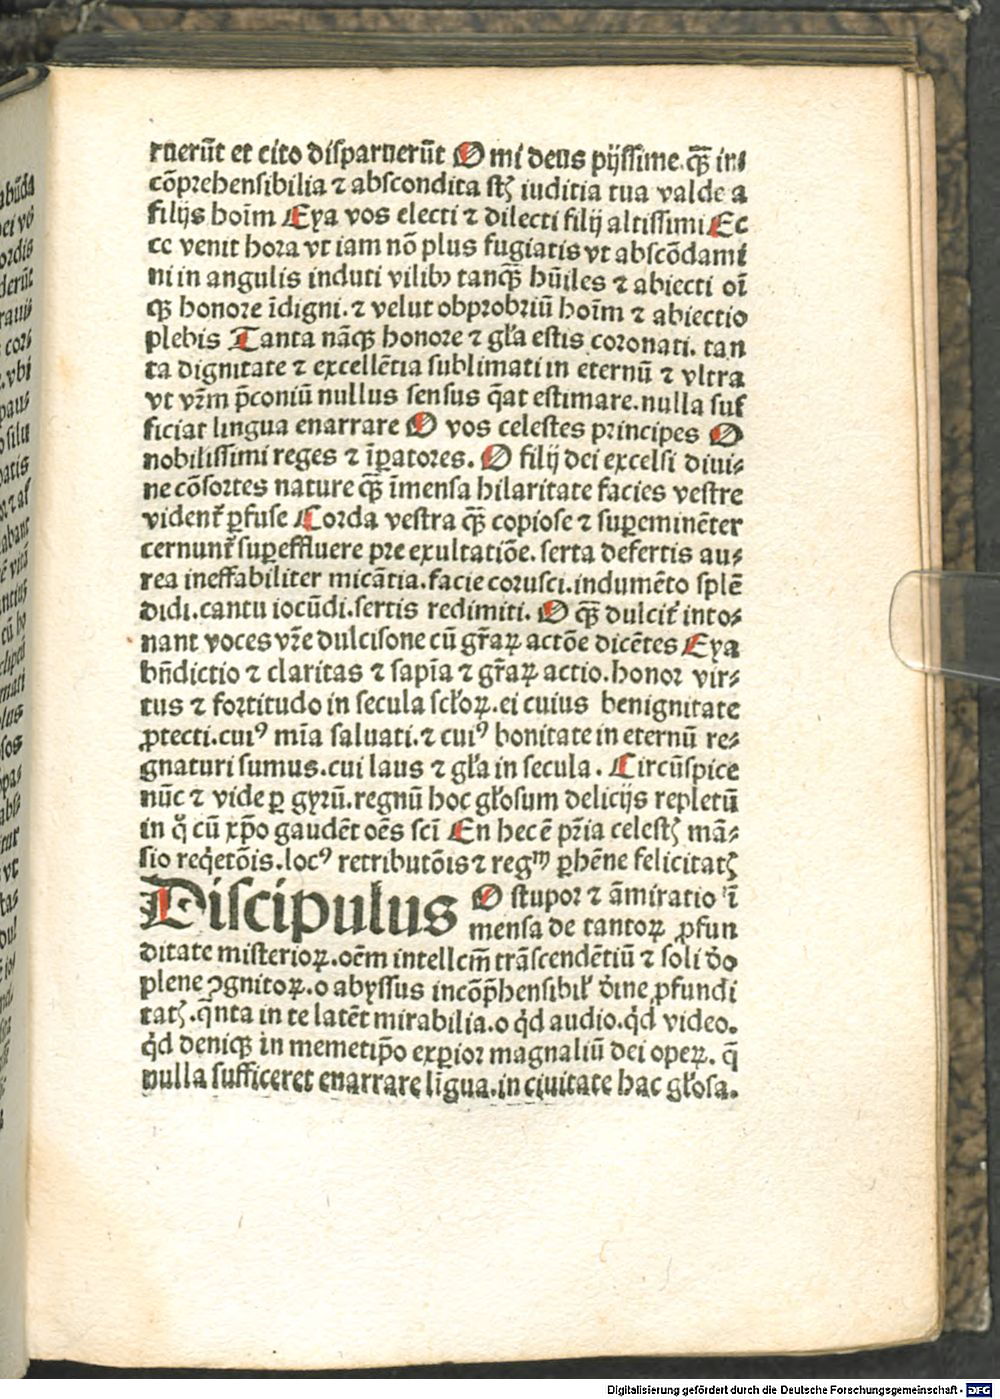 ruerūt et cito disparuerūt O mi deus pijssime. qȝ̄ in⸗
cōprehensibilia ⁊ abscondita stꝫ iuditia tua valde a
filijs hoīm Eya vos electi ⁊ dilecti filij altissimi Ec
ce venit hora vt iam nō plus fugiatis vt abscōdami
ni in angulis induti vilibꝰ tanqȝ̄ hūiles ⁊ abiecti oī
qȝ honore īdigni. ⁊ velut obprobriū hoīm ⁊ abiectio
plebis Tanta nāqȝ honore ⁊ gła estis coronati. tan
ta dignitate ⁊ excellētia sublimati in eternū ⁊ vltra
vt vr̄m p̄coniū nullus sensus q̄at estimare. nulla suf
ficiat lingua enarrare O vos celestes principes O
nobilissimi reges ⁊ īꝑatores. O filij dei excelsi diui⸗
ne cōsortes nature qȝ̄ īmensa hilaritate facies vestre
vident̄ ꝑfuse Corda vestra qȝ̄ copiose ⁊ suꝑeminēter
cernunt̄ suꝑeffluere pre exultatiōe. serta defertis au⸗
rea ineffabiliter micātia. facie corusci. indumēto splē
didi. cantu iocūdi. sertis redimiti. O qȝ̄ dulcit̄ into⸗
nant voces vr̄e dulcisone cū gr̄aꝝ actōe dicētes Eya
bn̄dictio ⁊ claritas ⁊ sapīa ⁊ gr̄aꝝ actio. honor vir⸗
tus ⁊ fortitudo in secula scłoꝝ. ei cuius benignitate
ꝓtecti. cuiꝰ mīa saluati. ⁊ cuiꝰ bonitate in eternū re⸗
gnaturi sumus. cui laus ⁊ gła in secula. Circūspice
nūc ⁊ vide ꝑ gyrū. regnū hoc głosum delicijs repletū
in q̊ cū xp̄o gaudēt oēs scī En hec ē pr̄ia celestꝫ mā⸗
sio reqͥetōis. locꝰ retributōis ⁊ regᵐ ꝑhēne felicitatꝫ
Discipulus O stupor ⁊ āmiratio ī
mensa de tantoꝝ ꝓfun
ditate misterioꝝ. oēm intellcm̄ trāscendētiū ⁊ soli d̄o
plene ꝯgnitoꝝ. o abyssus incōp̄hensibił d̄ine ꝓfundi
tatꝫ. q̄nta in te latēt mirabilia. o qͥd audio. qͥd video.
qͥd deniqȝ in memetip̄o exꝑior magnaliū dei opeꝝ. q̄
nulla sufficeret enarrare līgua. in ciuitate hac głosa.
Digitalisierung gefördert durch die Deutsche Forschungsgemeinschaft - DFG